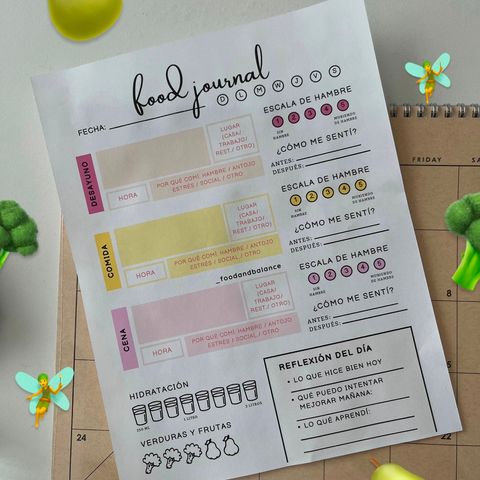 food journal
D L M W J V S
FECHA:
DESAYUNO
LUGAR
(CASA/
TRABAJO/
REST./ OTRO)
HORA
POR QUÉ COMÍ: HAMBRE / ANTOJO
ESTRÉS / SOCIAL / OTRO
ESCALA DE HAMBRE
1 2 3 4 5
SIN
HAMBRE
MURIENDO
DE HAMBRE
¿CÓMO ME SENTÍ?
ANTES:
DESPUÉS:
COMIDA
LUGAR
(CASA/
TRABAJO/
REST./ OTRO)
HORA
POR QUÉ COMÍ: HAMBRE / ANTOJO
ESTRÉS / SOCIAL / OTRO
ESCALA DE HAMBRE
1 2 3 4 5
SIN
HAMBRE
MURIENDO
DE HAMBRE
¿CÓMO ME SENTÍ?
ANTES:
DESPUÉS:
_foodandbalance
CENA
LUGAR
(CASA/
TRABAJO/
REST./ OTRO)
HORA
POR QUÉ COMÍ: HAMBRE / ANTOJO
ESTRÉS / SOCIAL / OTRO
ESCALA DE HAMBRE
1 2 3 4 5
SIN
HAMBRE
MURIENDO
DE HAMBRE
¿CÓMO ME SENTÍ?
ANTES:
DESPUÉS:
HIDRATACIÓN
250 ML
1 LITRO
2 LITROS
VERDURAS Y FRUTAS
REFLEXIÓN DEL DÍA
• LO QUE HICE BIEN HOY
• QUÉ PUEDO INTENTAR
MEJORAR MAÑANA:
• LO QUE APRENDÍ:
FRIDAY
SA
8
24